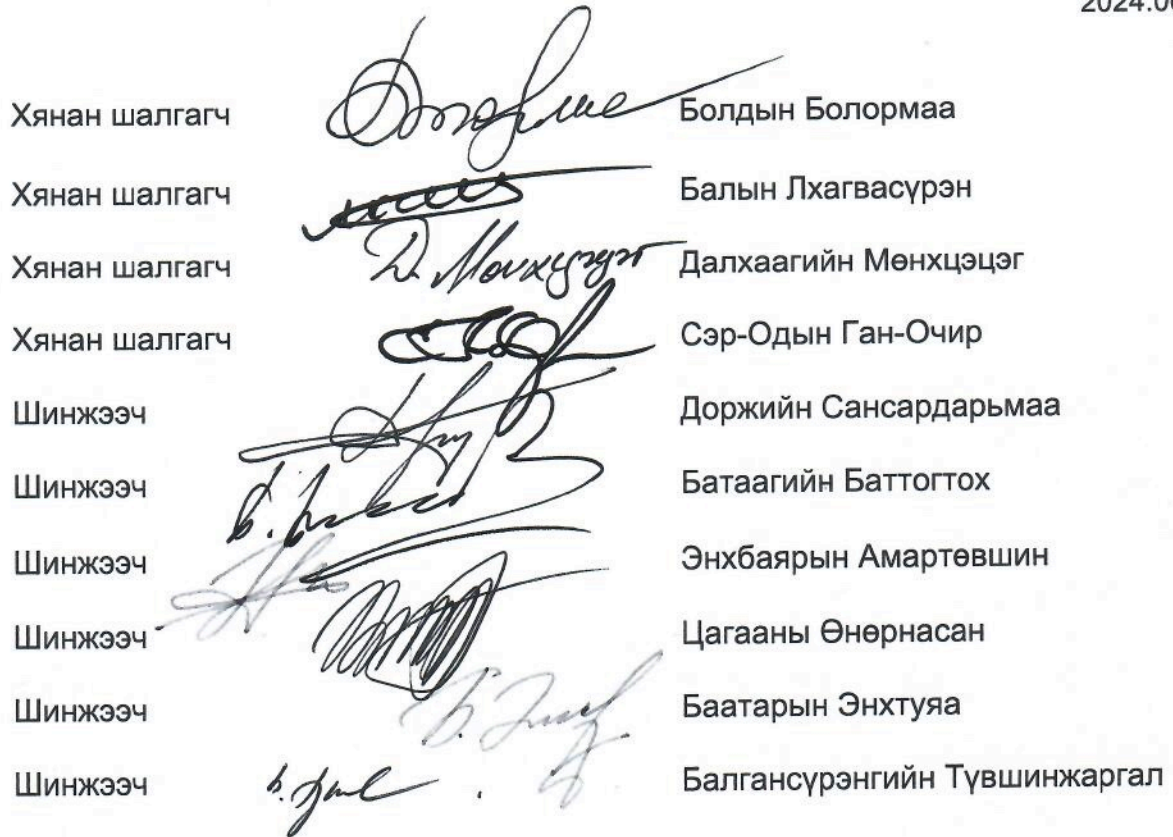 Хянан шалгагч Болдын Болормаа
Хянан шалгагч Балын Лхагвасүрэн
Хянан шалгагч Д. Мөнхцэцэг Далхаагийн Мөнхцэцэг
Хянан шалгагч Сэр-Одын Ган-Очир
Шинжээч Доржийн Сансардарьмаа
Шинжээч Батаагийн Баттогтох
Шинжээч Энхбаярын Амартөвшин
Шинжээч Цагааны Өнөрнасан
Шинжээч Баатарын Энхтуяа
Шинжээч Балгансүрэнгийн Түвшинжаргал